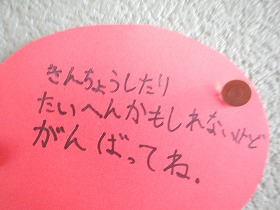 きんちょうしたり
たいへんかもしれないけど
がんばってね.